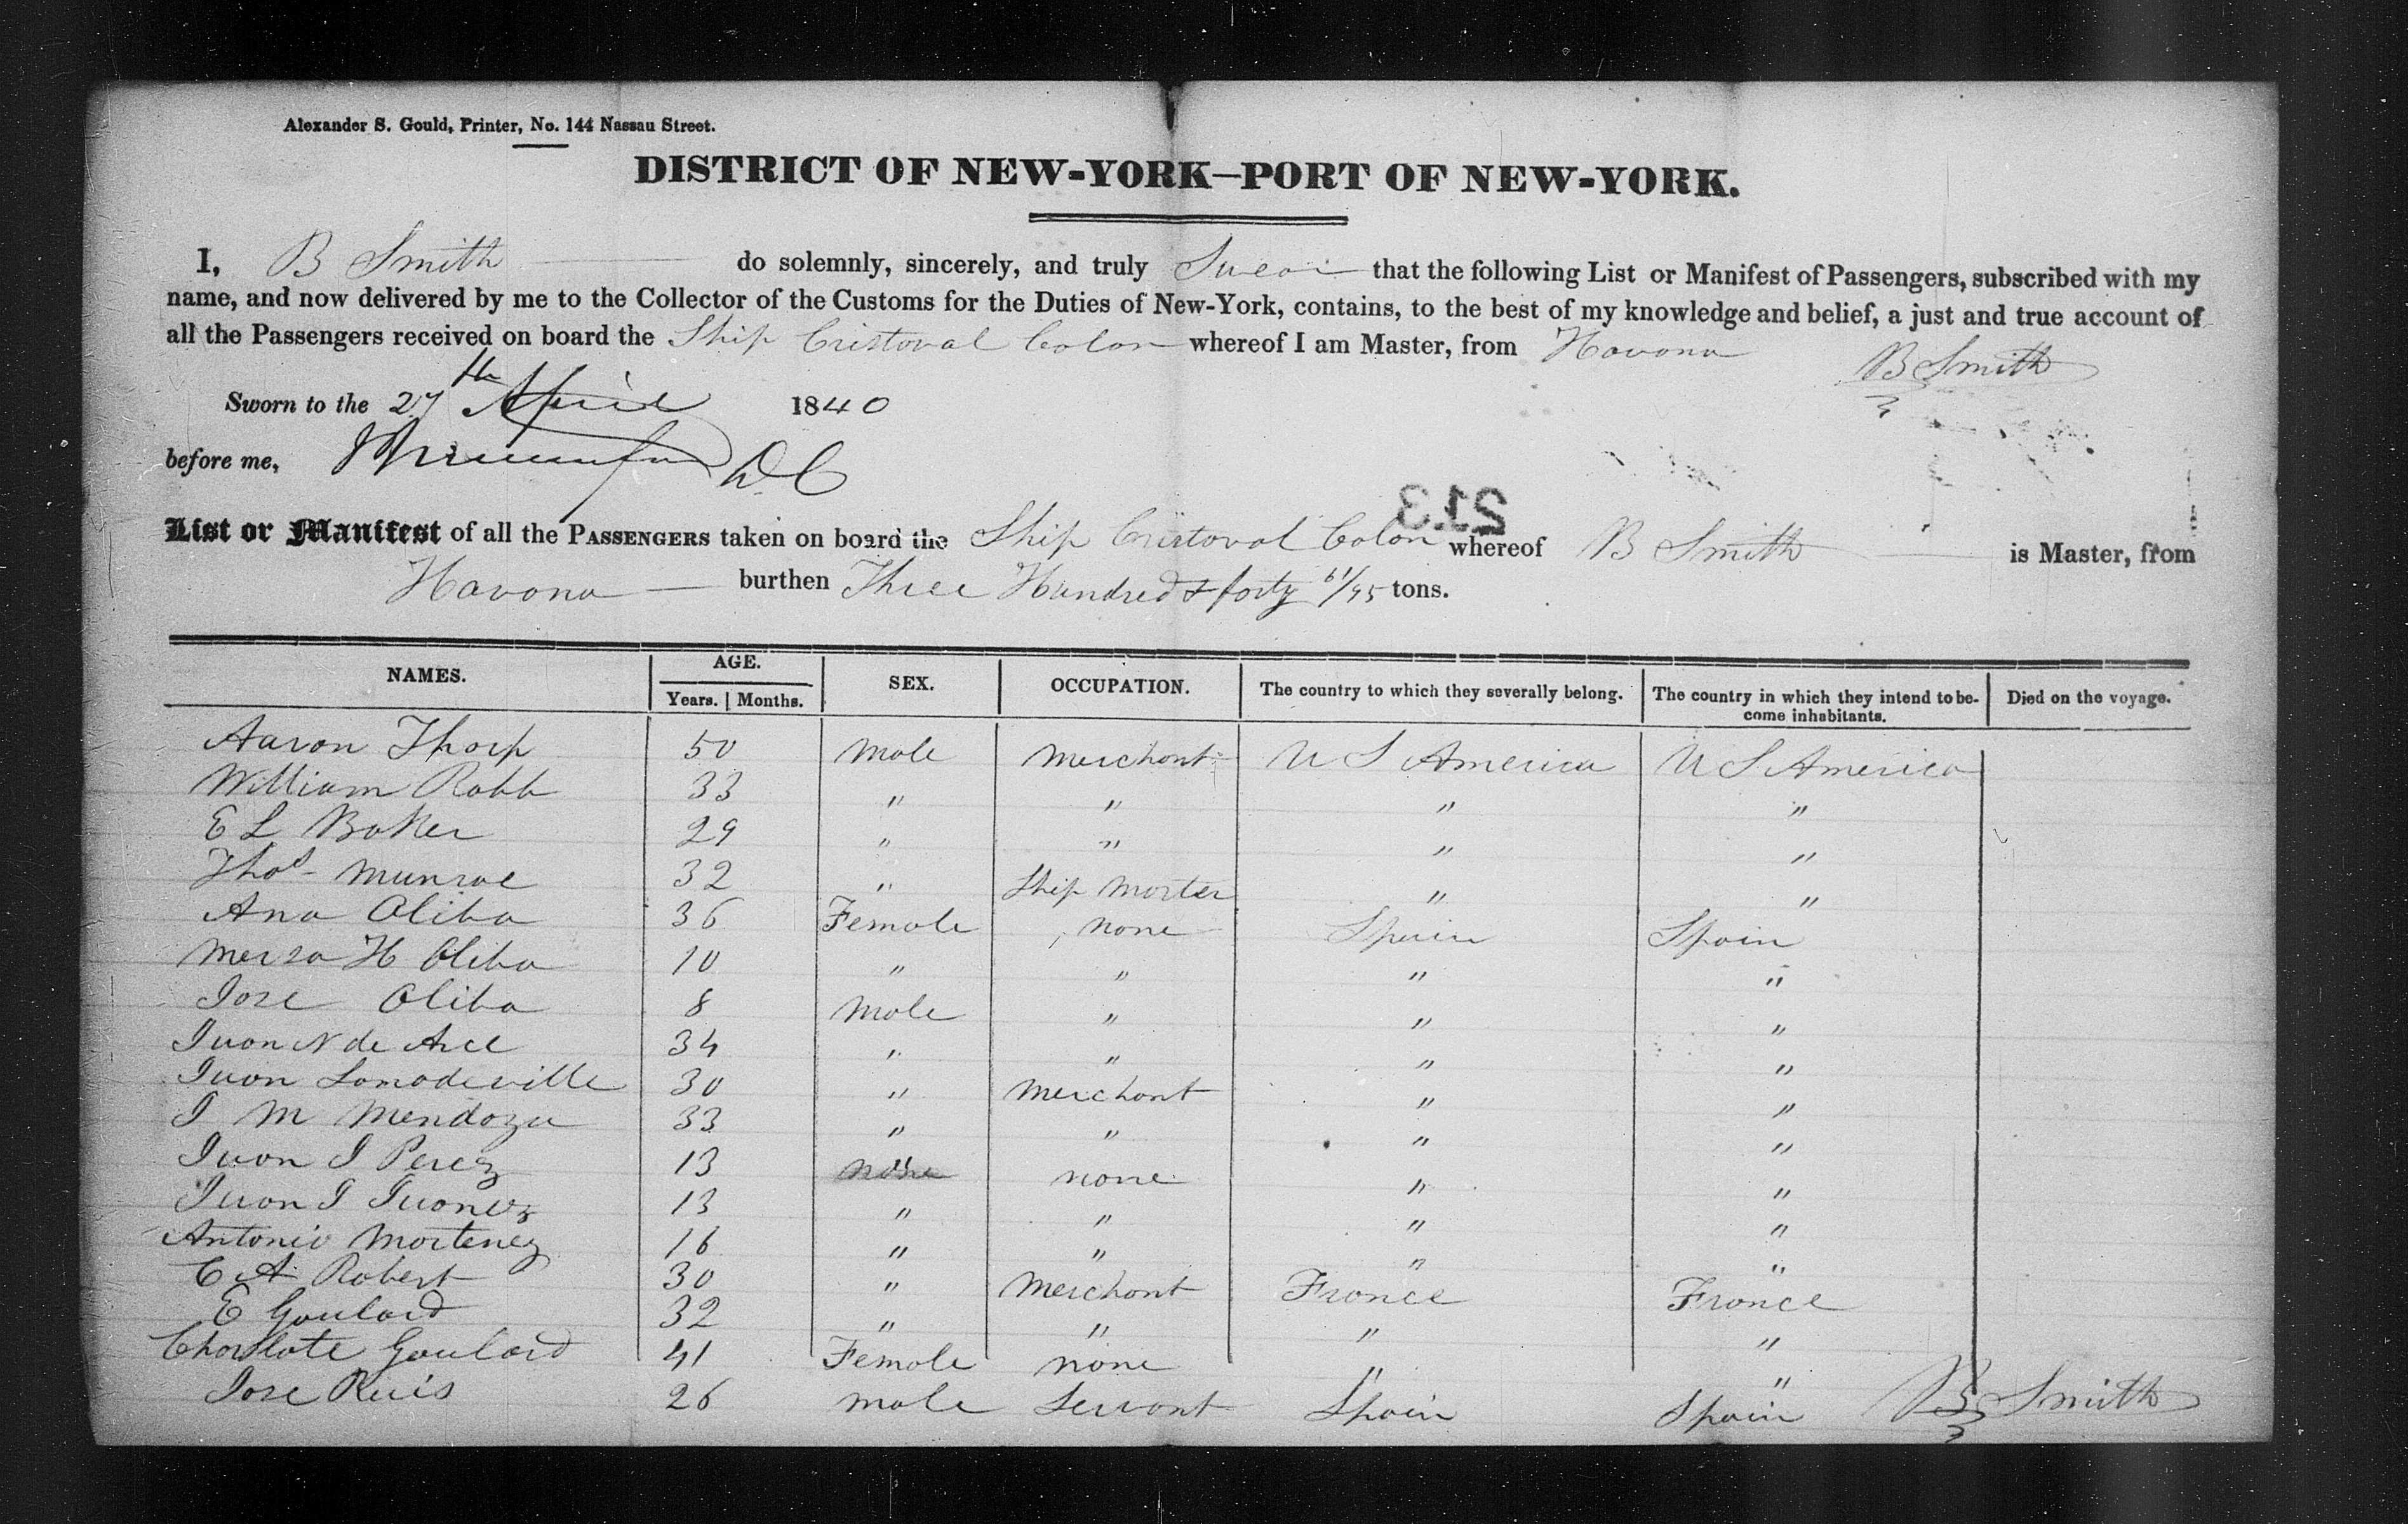 Alexander S. Gould, Printer, No. 144 Nassau Street.
DISTRICT OF NEW-YORK—PORT OF NEW-YORK.
I, B Smith do solemnly, sincerely, and truly Swear that the following List or Manifest of Passengers, subscribed with my
name, and now delivered by me to the Collector of the Customs for the Duties of New-York, contains, to the best of my knowledge and belief, a just and true account of
all the Passengers received on board the Ship Cristoval Colon whereof I am Master, from Havana
B Smith
Sworn to the 27th April 1840
before me, D.C
213
List or Manifest of all the PASSENGERS taken on board the Ship Cristoval Colon whereof B Smith is Master, from
Havana burthen Three Hundred & forty 61/95 tons.
NAMES. AGE. Years. Months. SEX. OCCUPATION. The country to which they severally belong. The country in which they intend to become inhabitants. Died on the voyage.
Aaron Thorp 50 Male Merchant U S America U S America
William Robb 33 " " " "
E L Baker 29 " " " "
Thos Munroe 32 " Ship Master " "
Ana Oliba 36 Female none Spain Spain
H Oliba 10 " " " "
Jose Oliba 8 Male " " "
Juan N de Arce 34 " " " "
Juan Lamadeville 30 " Merchant " "
J M Mendoza 33 " " " "
Juan J Perez 13 " none " "
Juan J 13 " " " "
Antonio Martenez 16 " " " "
C A Robert 30 " Merchant France France
E Goulard 32 " " " "
Charlote Goulard 41 Female none " "
Jose Ruis 26 male Servant Spain Spain
B Smith